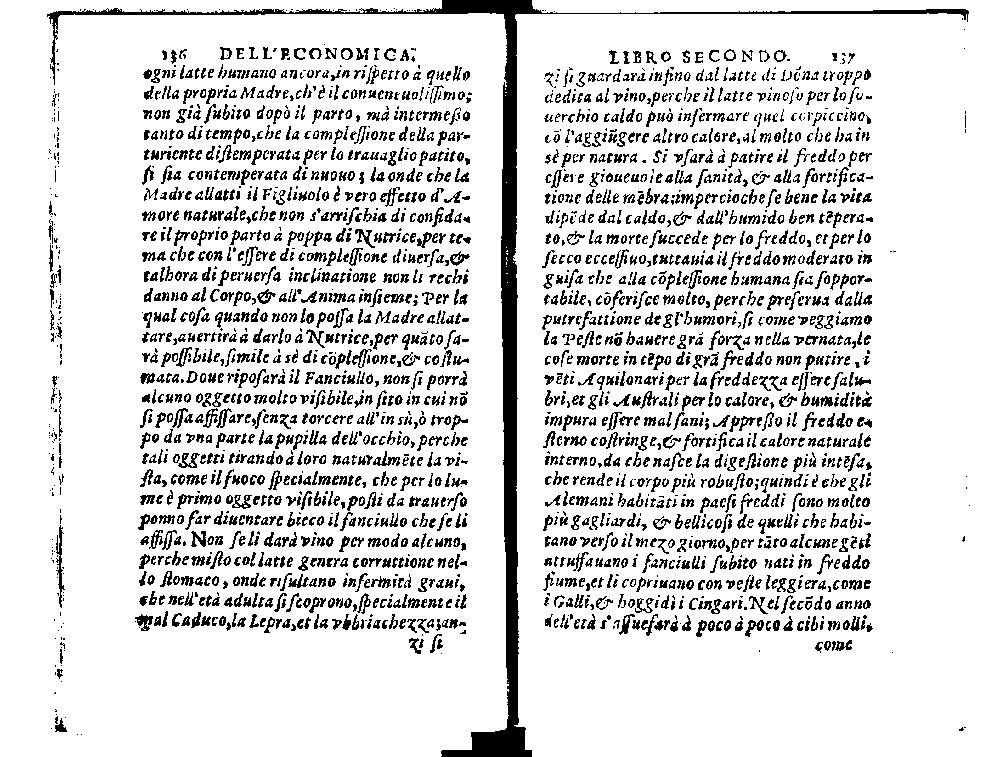 136 DELL'ECONOMICA.
ogni latte humano ancora, in rispetto à quello
della propria Madre, ch'è il conueneuolissimo;
non già subito dopò il parto, mà intermesso
tanto di tempo, che la complessione della par-
turiente distemperata per lo trauaglio patito,
si sia contemperata di nuouo; la onde che la
Madre allatti il Figliuolo è vero effetto d'A-
more naturale, che non s'arrischia di confida-
re il proprio parto à poppa di Nutrice, per te-
ma che con l'essere di complessione diuersa, &
talhora di peruersa inclinatione non li rechi
danno al Corpo, & all'Anima insieme; Per la
qual cosa quando non lo possa la Madre allat-
tare, auertirà à darlo à Nutrice, per quāto sa-
rà possibile, simile à sè di cōplessione, & costu-
mata. Doue riposarà il Fanciullo, non si porrà
alcuno oggetto molto visibile, in sito in cui nō
si possa affissare, senza torcere all'in sù, ò trop-
po da vna parte la pupilla dell'occhio, perche
tali oggetti tirando à loro naturalmēte la vi-
sta, come il fuoco specialmente, che per lo lu-
me è primo oggetto visibile, posti da trauerso
ponno far diuentare bieco il fanciullo che se li
affissa. Non se li darà vino per modo alcuno,
perche misto col latte genera corruttione nel-
lo stomaco, onde risultano infermità graui,
che nell'età adulta si scoprono, specialmente il
mal Caduco, la Lepra, et la vbbriachezza; an-
zi si
LIBRO SECONDO. 137
zi si guardarà infino dal latte di Dōna troppo
dedita al vino, perche il latte vinoso per lo so-
uerchio caldo può infermare quel corpiccino,
cō l'aggiūgere altro calore, al molto che ha in
sè per natura. Si vsarà à patire il freddo per
essere gioueuole alla sanità, & alla fortifica-
tione delle mēbra: impercioche se bene la vita
dipēde dal caldo, & dall'humido ben tēpera-
to, & la morte succede per lo freddo, et per lo
secco eccessiuo, tuttauia il freddo moderato in
guisa che alla cōplessione humana sia soppor-
tabile, cōferisce molto, perche preserua dalla
putrefattione de gl'humori, si come veggiamo
la Peste nō hauere grā forza nella vernata, le
cose morte in tēpo di grā freddo non putire, i
vēti Aquilonari per la freddezza essere salu-
bri, et gli Australi per lo calore, & humidità
impura essere mal sani; Appresso il freddo e-
sterno costringe, & fortifica il calore naturale
interno, da che nasce la digestione più intēsa,
che rende il corpo più robusto; quindi è che gli
Alemani habitāti in paesi freddi sono molto
più gagliardi, & bellicosi de quelli che habi-
tano verso il mezo giorno, per tāto alcune gēti
attuffauano i fanciulli subito nati in freddo
fiume, et li copriuano con veste leggiera, come
i Galli, & hoggidì i Cingari. Nel secōdo anno
dell'età s'assuefarà à poco à poco à cibi molli,
come